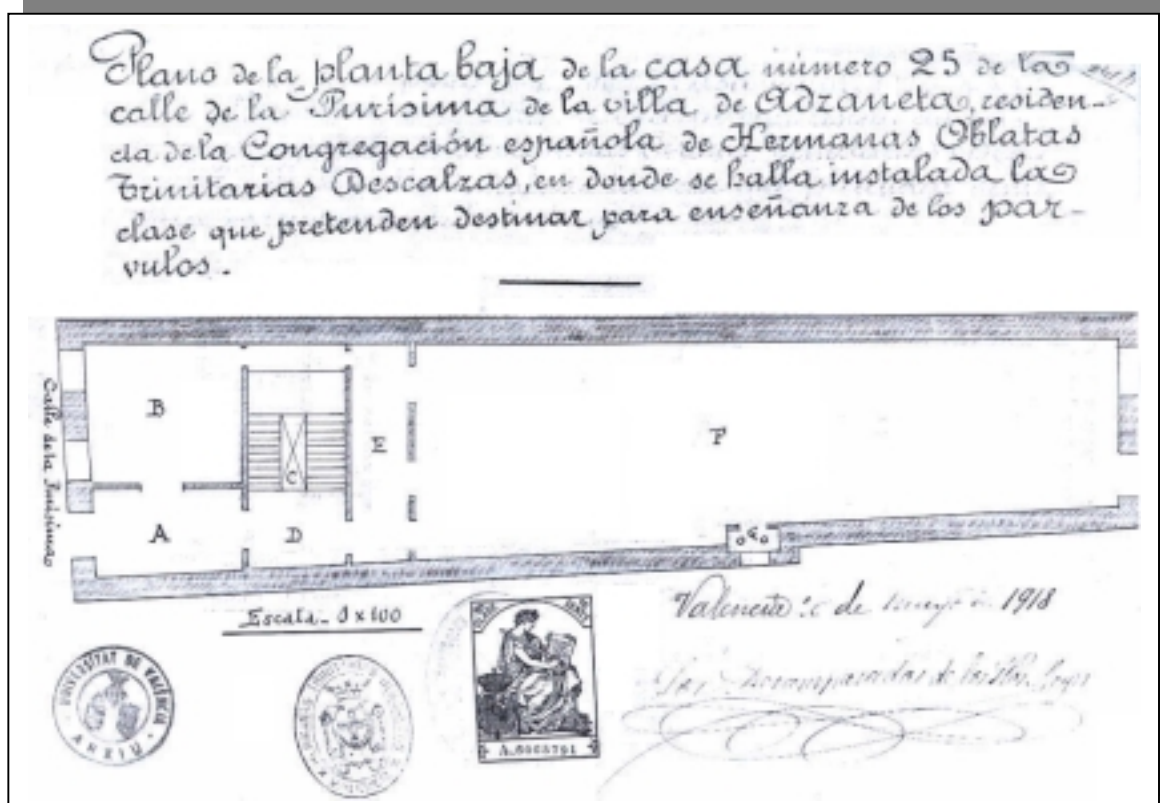 Plano de la planta baja de la casa número 25 de la
calle de la Purísima de la villa de Adzaneta, residen-
cia de la Congregación española de Hermanas Oblatas
Trinitarias Descalzas, en donde se halla instalada la
clase que pretenden destinar para enseñanza de los pár-
vulos.
Calle de la Purísima
B
C
E
F
A
D
G
Escala - 1 x 100
Valencia de mayo 1918
UNIVERSITAT DE VALÈNCIA
ARXIU